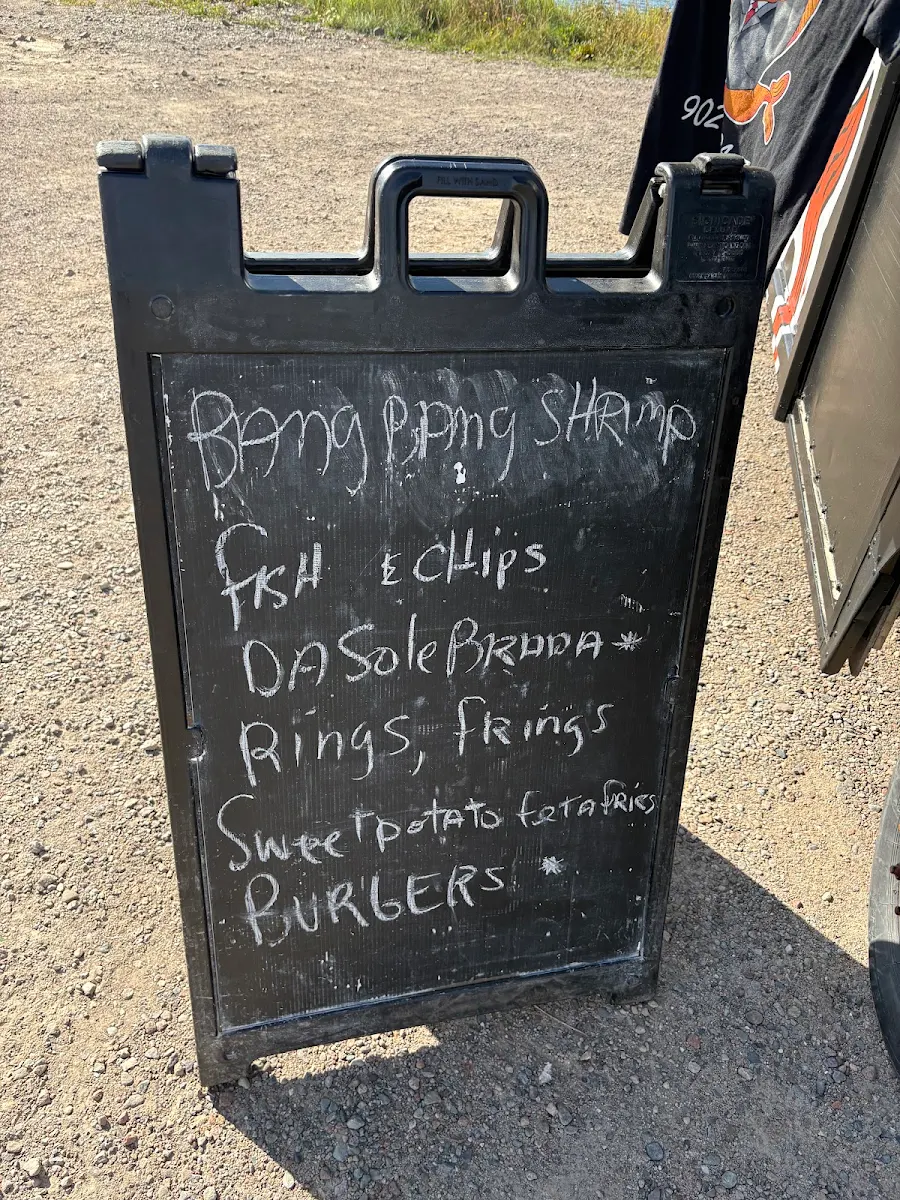 FILL WITH SAND
902
BANg BANg SHRimp
FISH & CHips
DA Sole BRADA *
Rings, fRings
Sweet potAto fetA fRies
BURGERS *